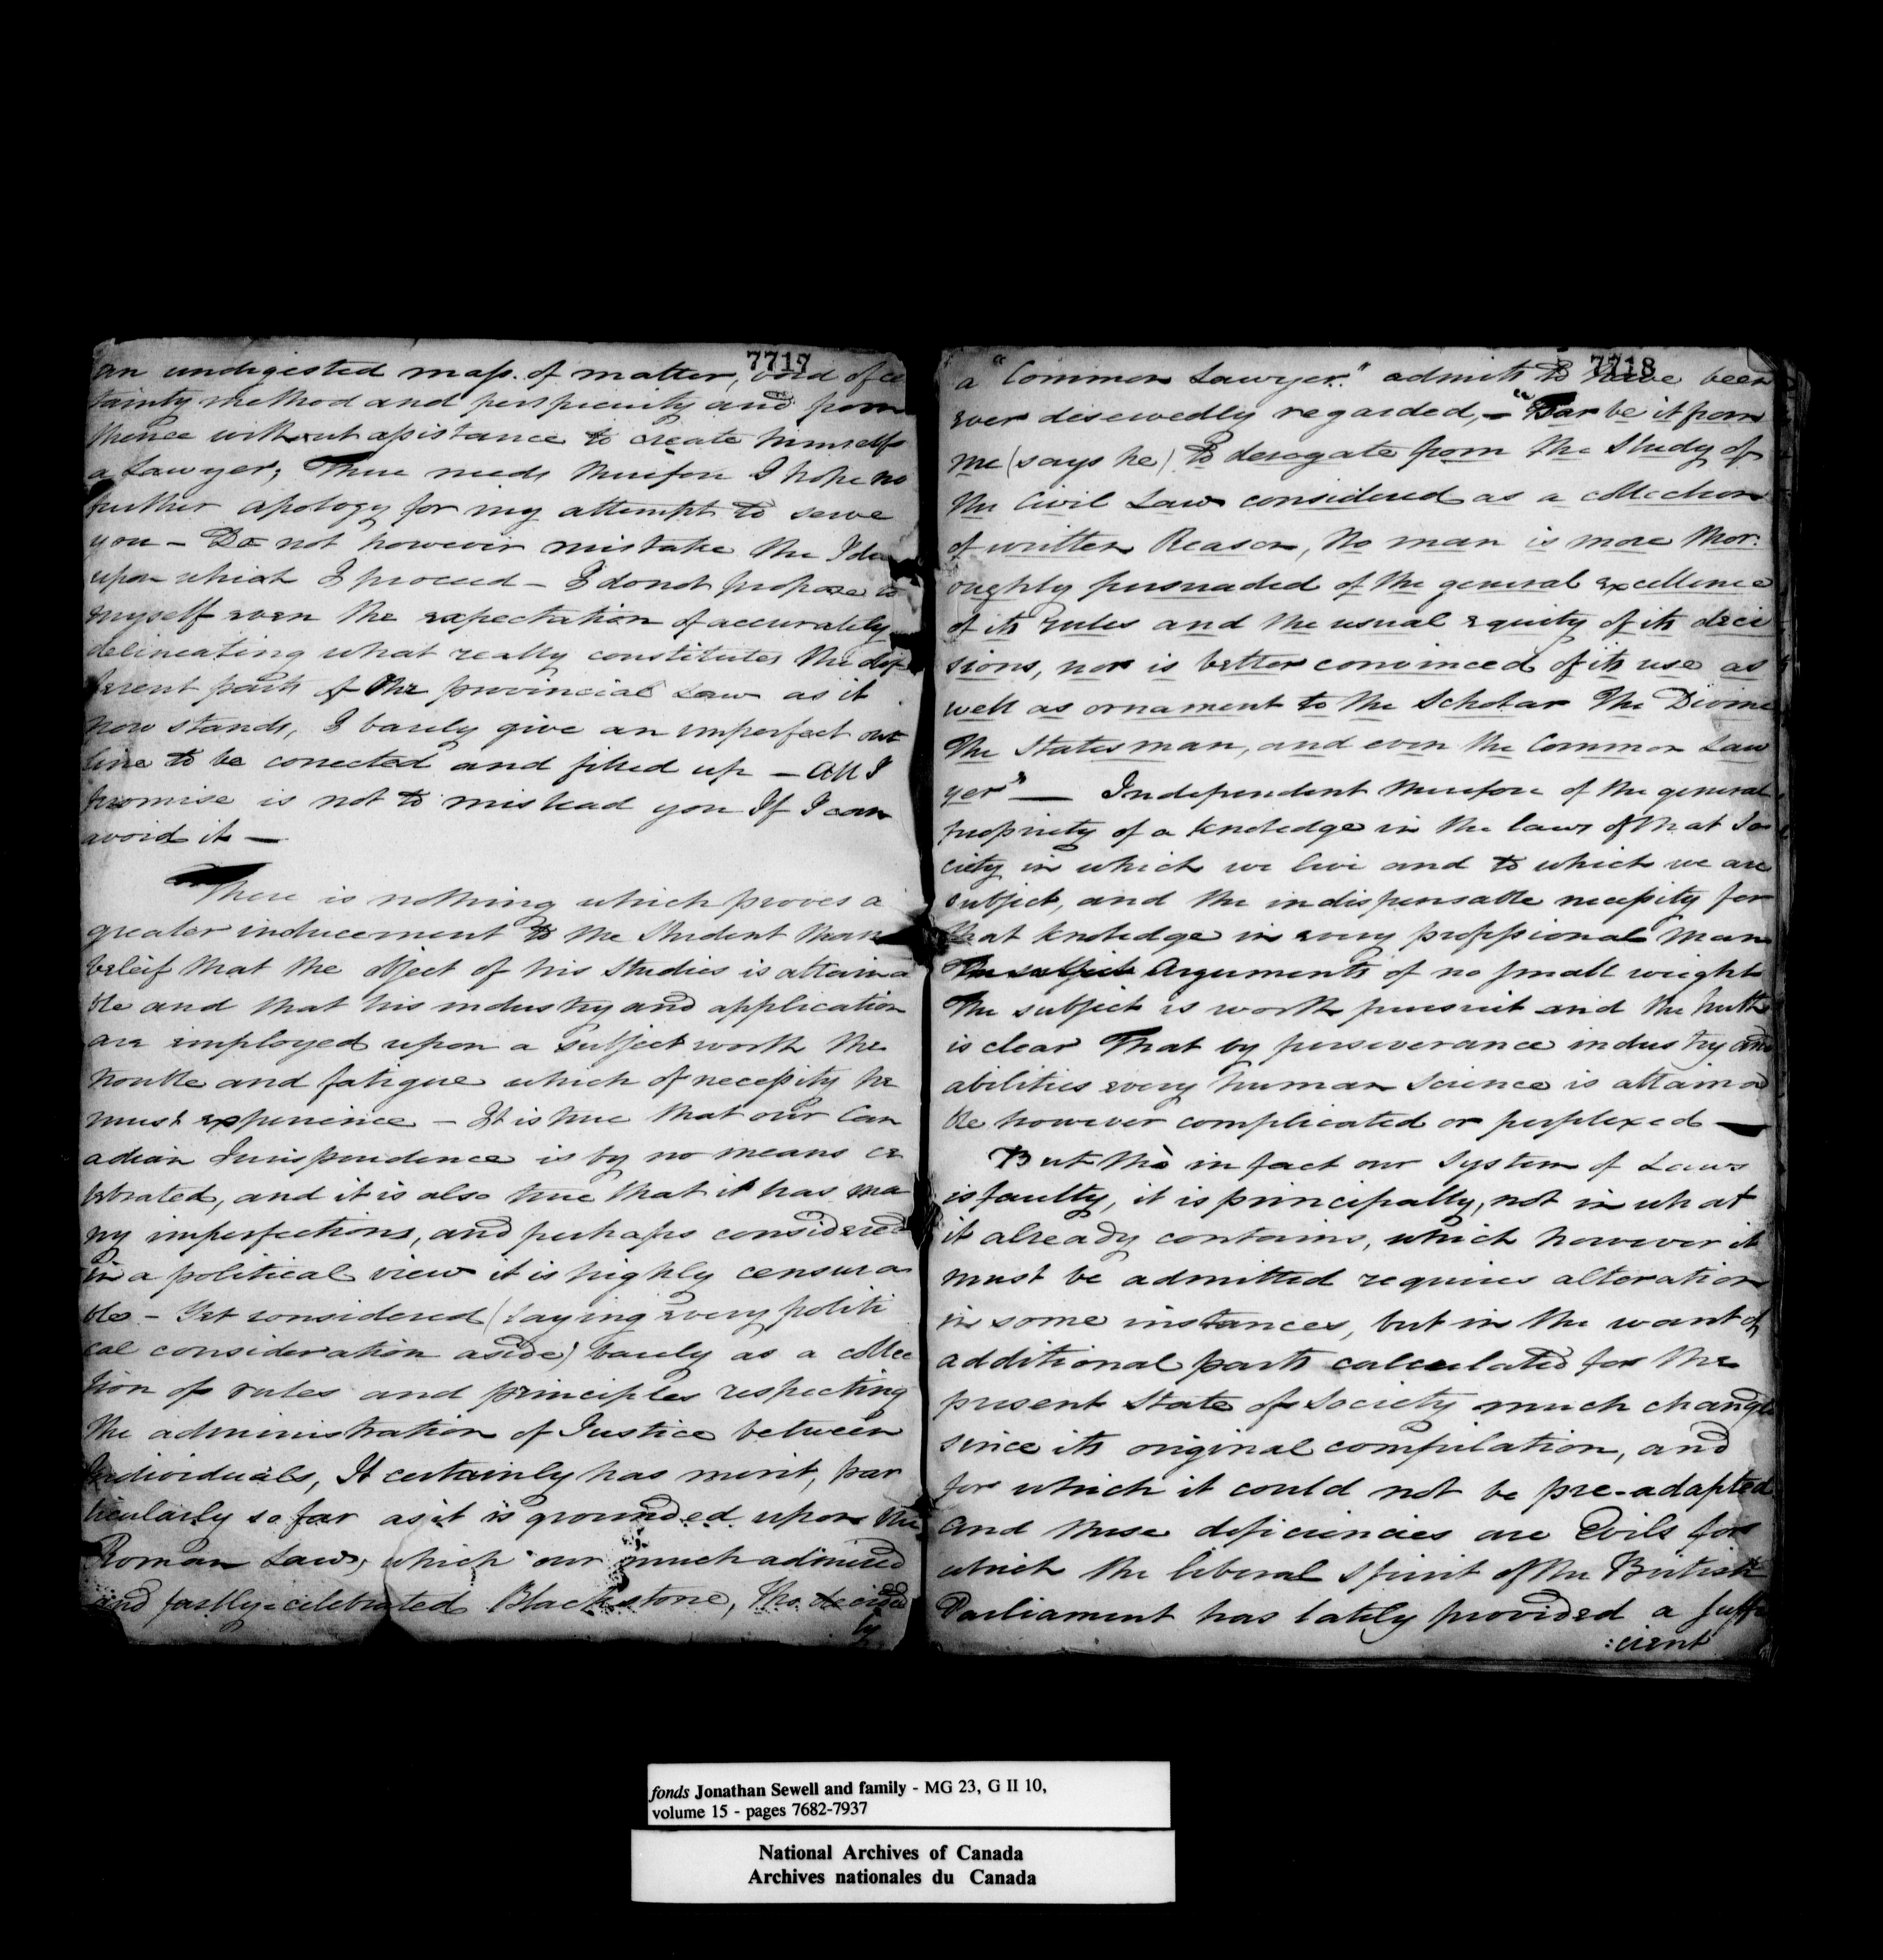 7717
an undigested mass of matter, void of cer
tainty method and perspicuity and from
thence without assistance to create himself
a Lawyer; There needs therefore I hope no
further apology for my attempt to serve
you - Do not however mistake the Idea
upon which I proceed - I do not propose to
myself even the expectation of accurately
delineating what really constitutes the dif
ferent parts of the provincial Law as it
now stands, I barely give an imperfect out
line to be corrected and filled up - All I
promise is not to mislead you If I can
avoid it -
There is nothing which proves a
greater inducement to the Student than
beleif that the object of his Studies is attaina
ble and that his industry and application
are imployed upon a subject worth the
trouble and fatigue which of necessity he
must experience - It is true that our Can
adian Jurisprudence is by no means ce
lebrated, and it is also true that it has ma
ny imperfections, and perhaps considered
in a political view it is highly censura
ble - Yet considered (laying every politi
cal consideration aside) barely as a collec
tion of rules and principles respecting
the administration of Justice between
Individuals, It certainly has merit, par
ticularly so far as it is grounded upon the
Roman Law, which our much admired
and justly celebrated Blackstone, tho decided
ly
7718
a "Common Lawyer." admits to have been
ever deservedly regarded, - "Far be it from
me (says he) to derogate from the Study of
the Civil Law considered as a collection
of written Reason, No man is more thor
oughly persuaded of the general excellence
of its rules and the usual equity of its deci
sions, nor is better convinced of its use as
well as ornament to the Scholar The Divine
The Statesman, and even the Common Law
yer" — Independent therefore of the general
propriety of a knoledge in the laws of that So
ciety in which we live and to which we are
subject, and the indispensable necessity for
that knoledge in every professional man
The subject Arguments of no small weight
The subject is worth pursuit and the truth
is clear That by perseverance industry and
abilities every human Science is attaina
ble however complicated or perplexed —
But tho in fact our System of Laws
is faulty, it is principally, not in what
it already contains, which however it
must be admitted requires alteration
in some instances, but in the want of
additional parts calculated for the
present State of Society much changed
since its original compilation, and
for which it could not be pre-adapted
And these deficiencies are Evils for
which the liberal Spirit of the British
Parliament has lately provided a suffi
:cient
fonds Jonathan Sewell and family - MG 23, G II 10,
volume 15 - pages 7682-7937
National Archives of Canada
Archives nationales du Canada